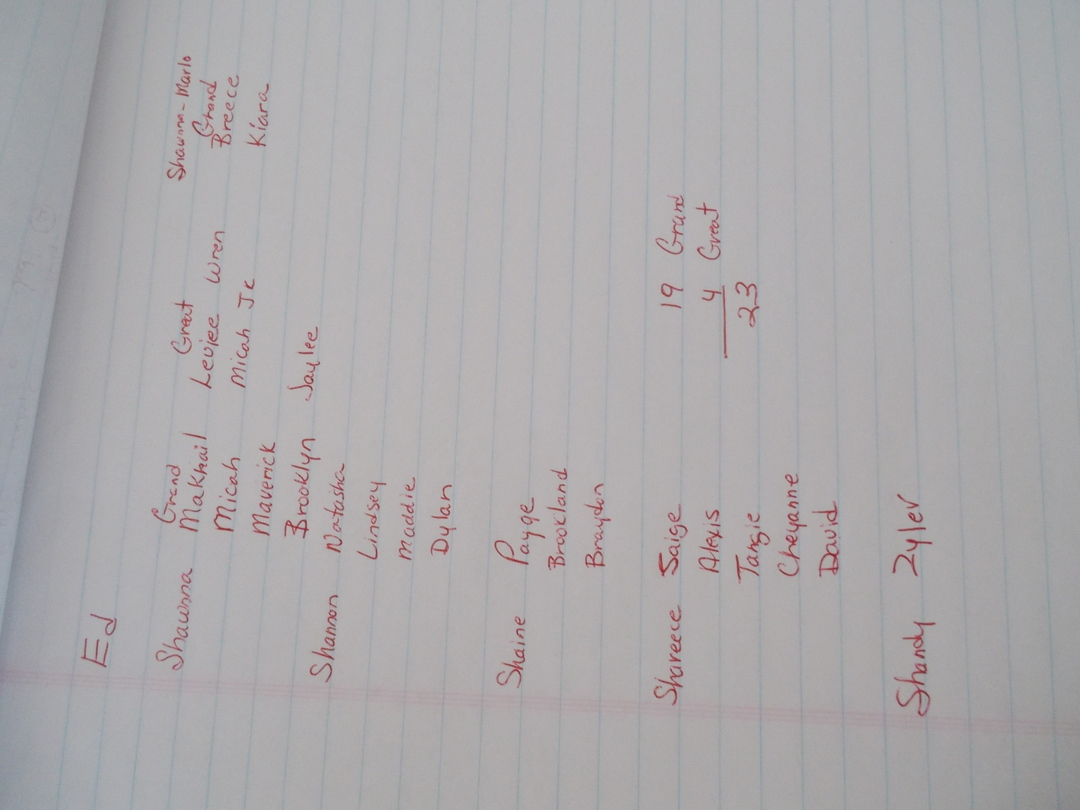 Ed
Shawnna Grand Great Shawnna-Marlo
Makhail Leviee Wren Grand
Micah Micah Jr Breece
Maverick Kiara
Brooklyn Jaylee
Shannon Natasha
Lindsey
Maddie
Dylan
Shaine Payge
Brookland
Braydon
Shareece Saige 19 Grand
Alexis 4 Great
Tangie 23
Cheyanne
David
Shandy Zyler